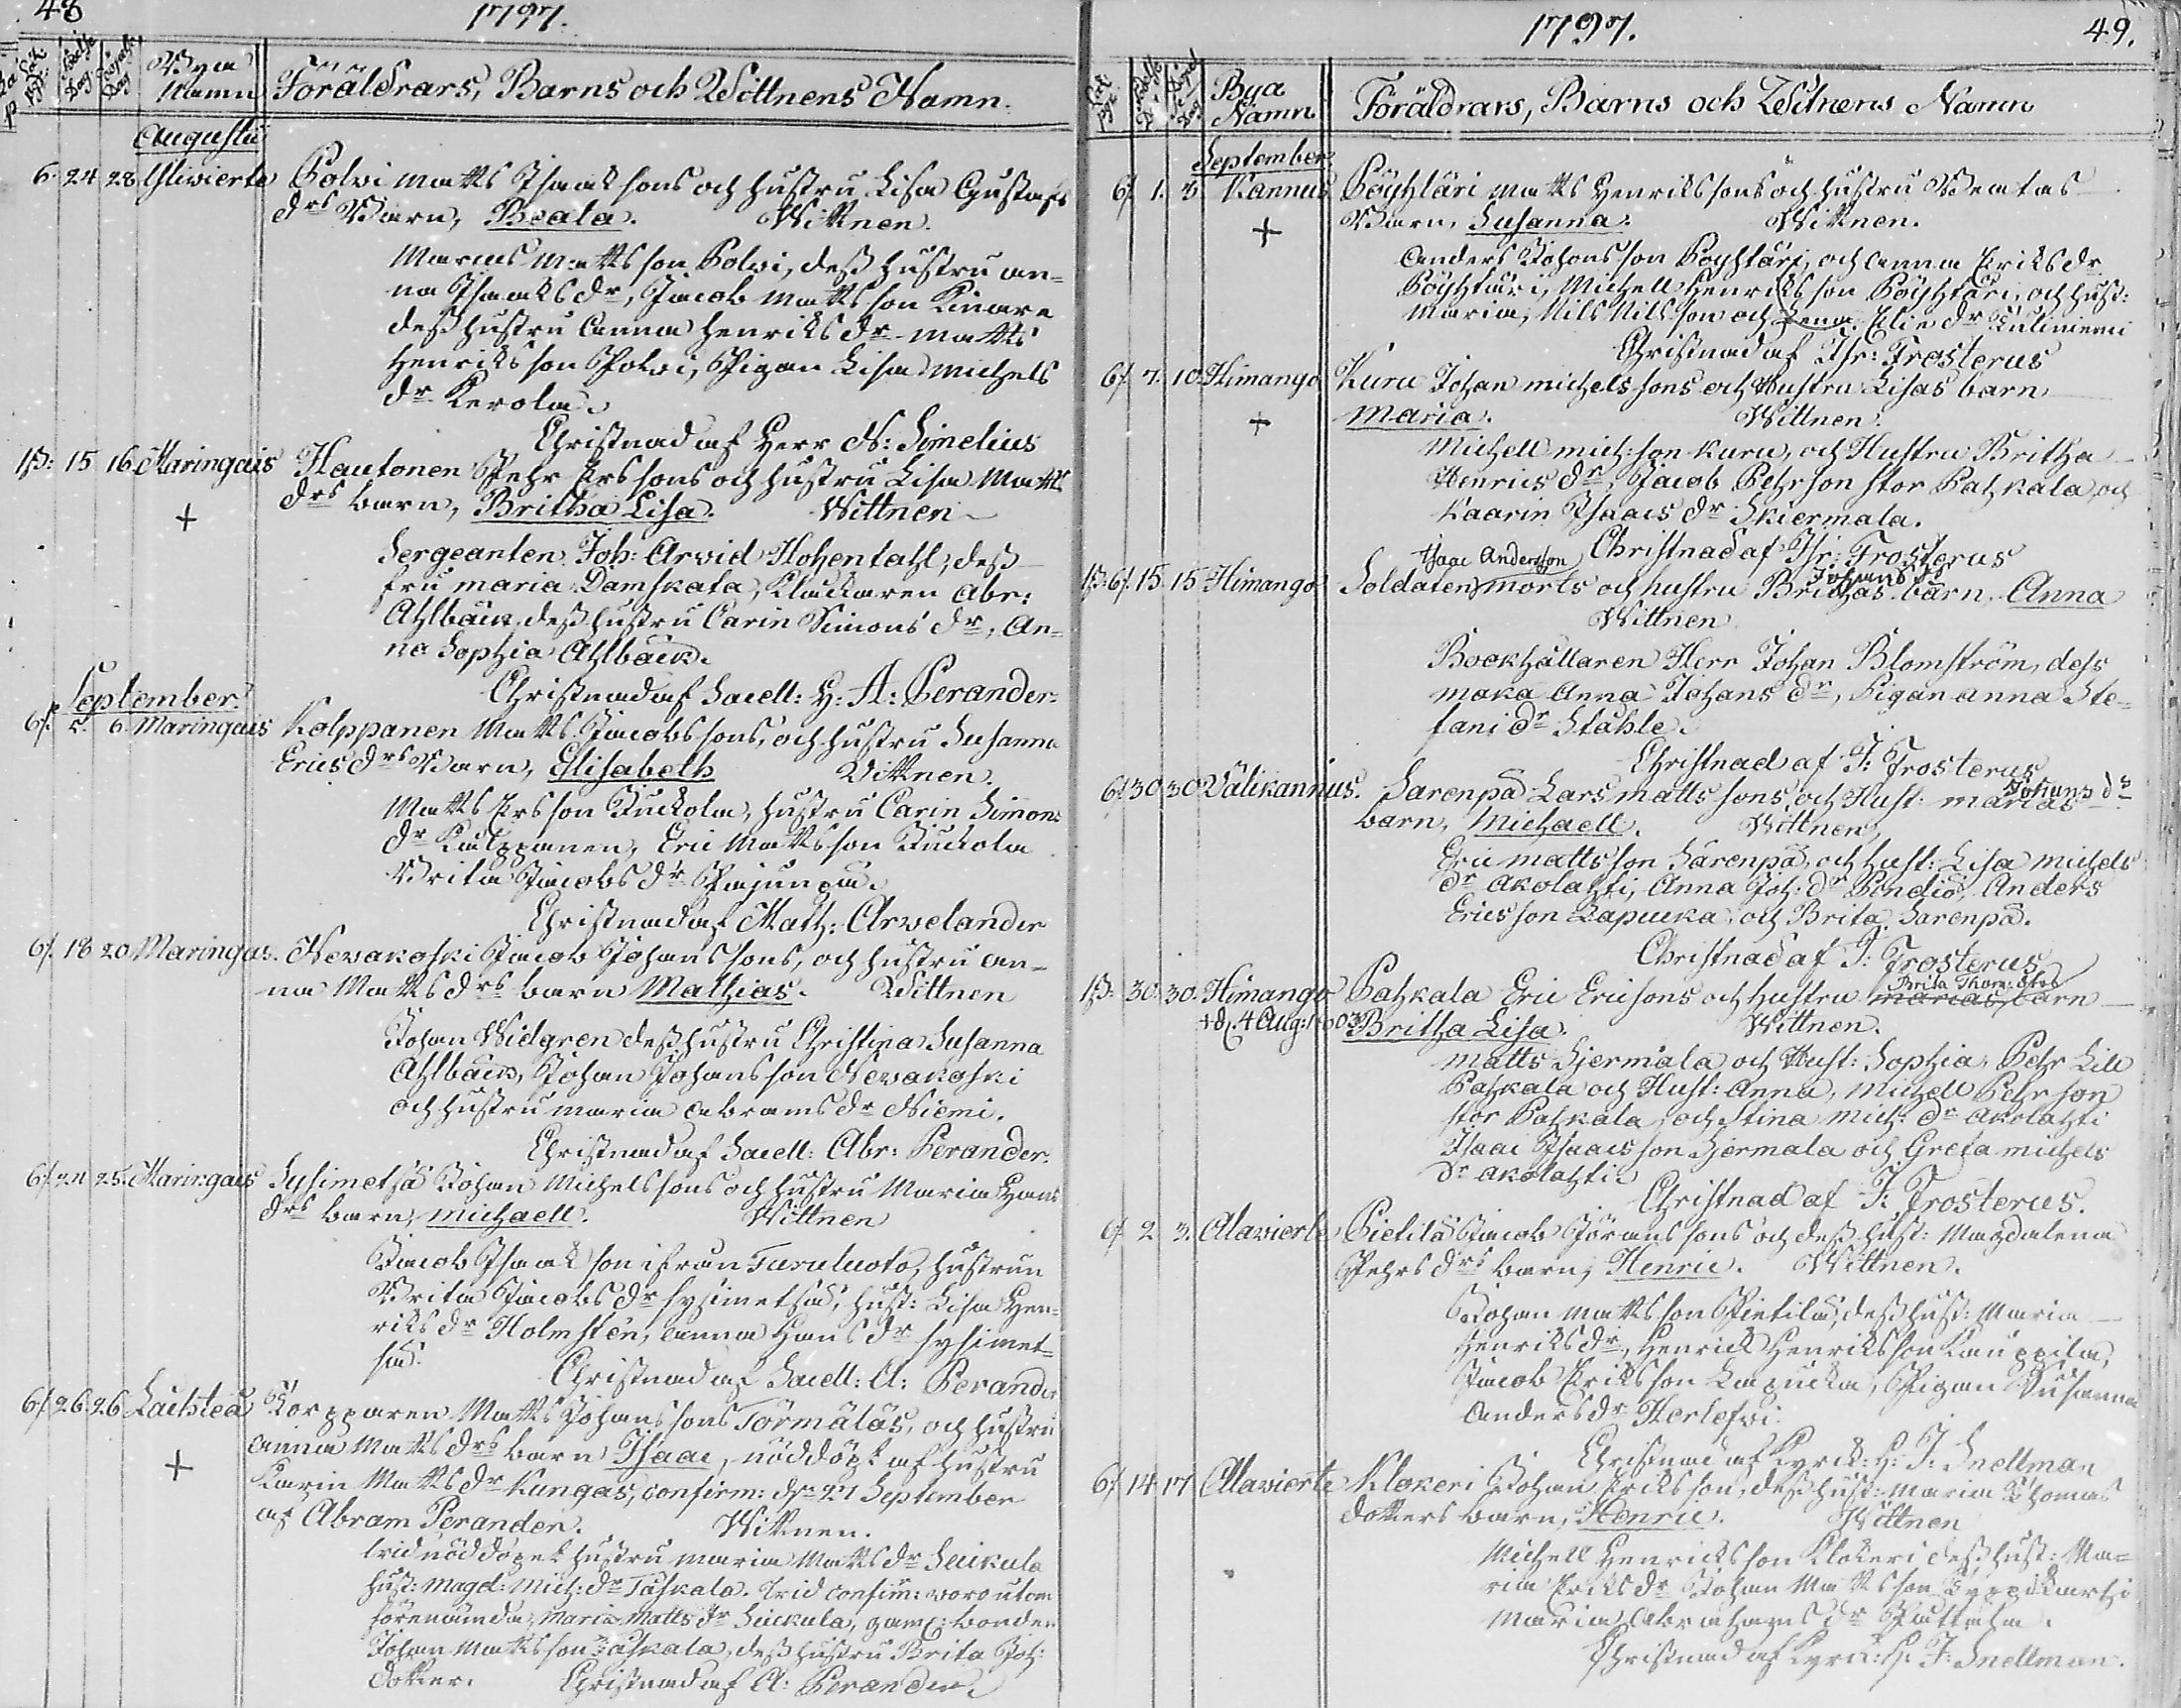 48
1797.
Födelse Dag
Bya Namn
Föräldrars, Barns och Wittnens Namn.
Augustii
6. 24 28 Yliwierte Polvi Matts Isaakssons och hustru Lisa Gustafs
drs Barn, Beata. Wittnen.
Marcus Mattsson Polvi, dess hustru An-
na Isaaksdr, Jacob Mattsson Kinare
dess hustru Anna Henriksdr Matts
Henriksson Polvi, Pigan Lisa Michels
dr Kerola.
Christnad af Herr N: Simelius
15 16. Maringais Hautonen Pehr Erssons och hustru Lisa Matts
drs barn, Britha Lisa. Wittnen
+
Sergeanten Joh: Arvid Hohentahl, dess
fru Maria Damskata, Klockaren Abr:
Ahlbäck, dess hustru Carin Simons dr, An-
na Sophia Ahlbäck.
Christnad af Sacell: H: A: Perander.
September.
6/. 5. 6. Maringais Kalppanen Matts Jacobssons, och hustru Susanna
Erics drs Barn, Elisabeth Wittnen.
Matts Ersson Tuckola, hustru Carin Simons
dr Kalppanen, Eric Mattsson Tuckola
Brita Jacobs dr Pajunpää.
Christnad af Math: Arvelander
6/. 18 20 Maringas. Newakoski Jacob Johanssons, och hustru An-
na Matts drs barn Mathias. Wittnen
Johan Widgren dess hustru Christina Susanna
Ahlbäck, Johan Johansson Newakoski
och hustru Maria Abrams dr Niemi.
Christnad af Sacell: Abr: Perander.
6/. 24 25. Maringais Sysimetsä Johan Michelssons och hustru Maria Hans
drs barn, Michaell. Wittnen
Jacob Isaakson ifrån Turuluoto, hustrun
Brita Jacobs dr Sysimetsä, hust: Lisa Hen-
riks dr Holmsten, Anna Hans dr Sysimet-
sä. Christnad af Sacell: A: Perander
6/. 26 26 Laihstea Korpparen Matts Johanssons Törmäläs, och hustru
Anna Matts drs barn Isaac, nöddöpt af hustru
+
Karin Matts dr Kungas, confirm: d. 27 September
af Abram Perander. Wittnen.
wid nöddopet hustru Maria Matts dr Seikula
hust: Magd: Mich: dr Täskala. wid confirm: woro utom
förenämnda, Maria Matts dr Seikula, gaml: bonden
Johan Mattsson Täskala, dess hustru Brita Joh:
dotter. Christnad af A: Perander.
1797.
49.
Bya Namn
Föräldrars, Barns och Witnens Namn
September.
6/. 1. 3. Kannus Pöyhtäri Matts Henrikssons och hustru Beatas
Barn, Susanna. Wittnen.
+
Anders Johansson Pöyhtäri, och Anna Eriks dr
Pöyhtäri, Michell Henriksson Pöyhtäri, och hust:
Maria, Nils Nilsson och Lena Elie dr Kuliniemi
Christnad af Thr: Frosterus
6/. 7. 10. Himango Kuru Johan Michelssons och Hustru Lisas barn
Maria. Wittnen.
+
Michell Mich:son Kuru, och Hustru Britha
Henrics dr, Jacob Pehrson stor Pahkala, och
Kaarin Isaacs dr Skiermala.
Christnad af Thr: Frosterus
Isaac Andersson Johans dr
6/. 15 15 Himango Soldaten Morts och hustru Brithas barn, Anna
Wittnen
Bookhållaren Herr Johan Blomström, dess
maka Anna Johans dr, Pigan Anna Ste-
fani dr Ståhle.
Christnad af J: Frosterus
Johans dr
6/. 30 30 Välikannus. Sarenpä Lars Mattssons, och Hust: Marias
barn, Michaell. Wittnen
Eric Mattsson Särenpä, och hust: Lisa Michels
dr Akolahti, Anna Joh: dr Pendiö, Anders
Ericsson Lapucka, och Brita Sarenpä.
Christnad af J: Frosterus
Brita Thom: drs
30. 30. Himango Pahkala Eric Ericsons och hustru Marias barn
+ d. 4 Aug: 1803 Britha Lisa. Wittnen.
Matts Sjermäla och Hust: Sophia, Pehr Lill
Pahkala och Hust: Anna, Michell Pehrson
stor Pahkala och Stina Mich: dr Akolahti
Isaac Isaacsson Sjermala och Greta Michels
dr Akolahti
Christnad af J: Frosterus.
6/. 2 3. Alawierte Pietilä Jacob Göranssons och dess hust: Magdalena
Pehrs drs barn, Henric. Wittnen.
Johan Mattsson Pietilä, dess hust: Maria
Henriks dr, Henrick Henriksson Kauppila,
Jacob Eriksson Lapucka, Pigan Susanna
Anders dr Herlefvi.
Christnad af Kyrck: H: J: Snellman
6/. 14 17 Alawierte Klokeri Johan Eriksson, dess hust: Maria Thomas
dotters barn, Henric. Wittnen
Michell Henricksson Klokeri dess hust: Ma-
ria Eriks dr Johan Mattsson Typpikarhi
Maria Abrahams dr Puttalm.
Christnad af Kyrck: H. J: Snellman.